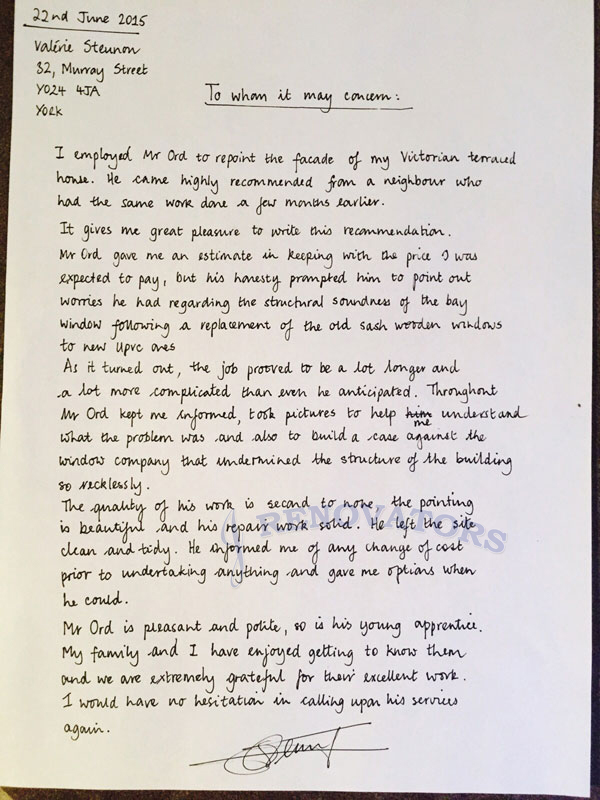 22nd June 2015
Valérie Steunon
32, Murray Street
YO24 4JA
York
To whom it may concern:
I employed Mr Ord to repoint the facade of my Victorian terraced
house. He came highly recommended from a neighbour who
had the same work done a few months earlier.
It gives me great pleasure to write this recommendation.
Mr Ord gave me an estimate in keeping with the price I was
expected to pay, but his honesty prompted him to point out
worries he had regarding the structural soundness of the bay
window following a replacement of the old sash wooden windows
to new upvc ones
As it turned out, the job prooved to be a lot longer and
a lot more complicated than even he anticipated. Throughout
Mr Ord kept me informed, took pictures to help him me understand
what the problem was and also to build a case against the
window company that undermined the structure of the building
so recklessly.
The quality of his work is second to none, the pointing
is beautiful and his repair work solid. He left the site
clean and tidy. He informed me of any change of cost
prior to undertaking anything and gave me options when
he could.
Mr Ord is pleasant and polite, so is his young apprentice.
My family and I have enjoyed getting to know them
and we are extremely grateful for their excellent work.
I would have no hesitation in calling upon his services
again.
RENOVATORS